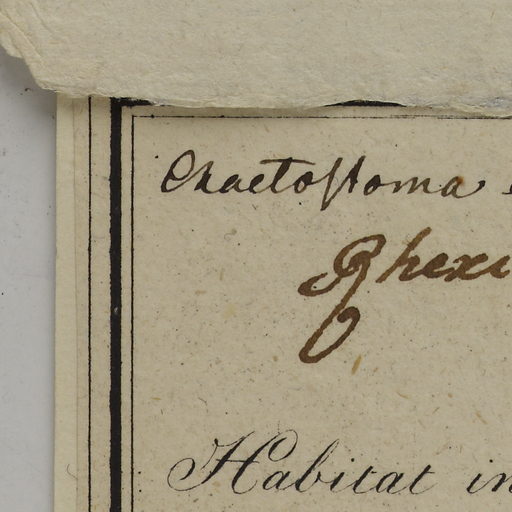 Chaetostoma
Rhexi
Habitat in